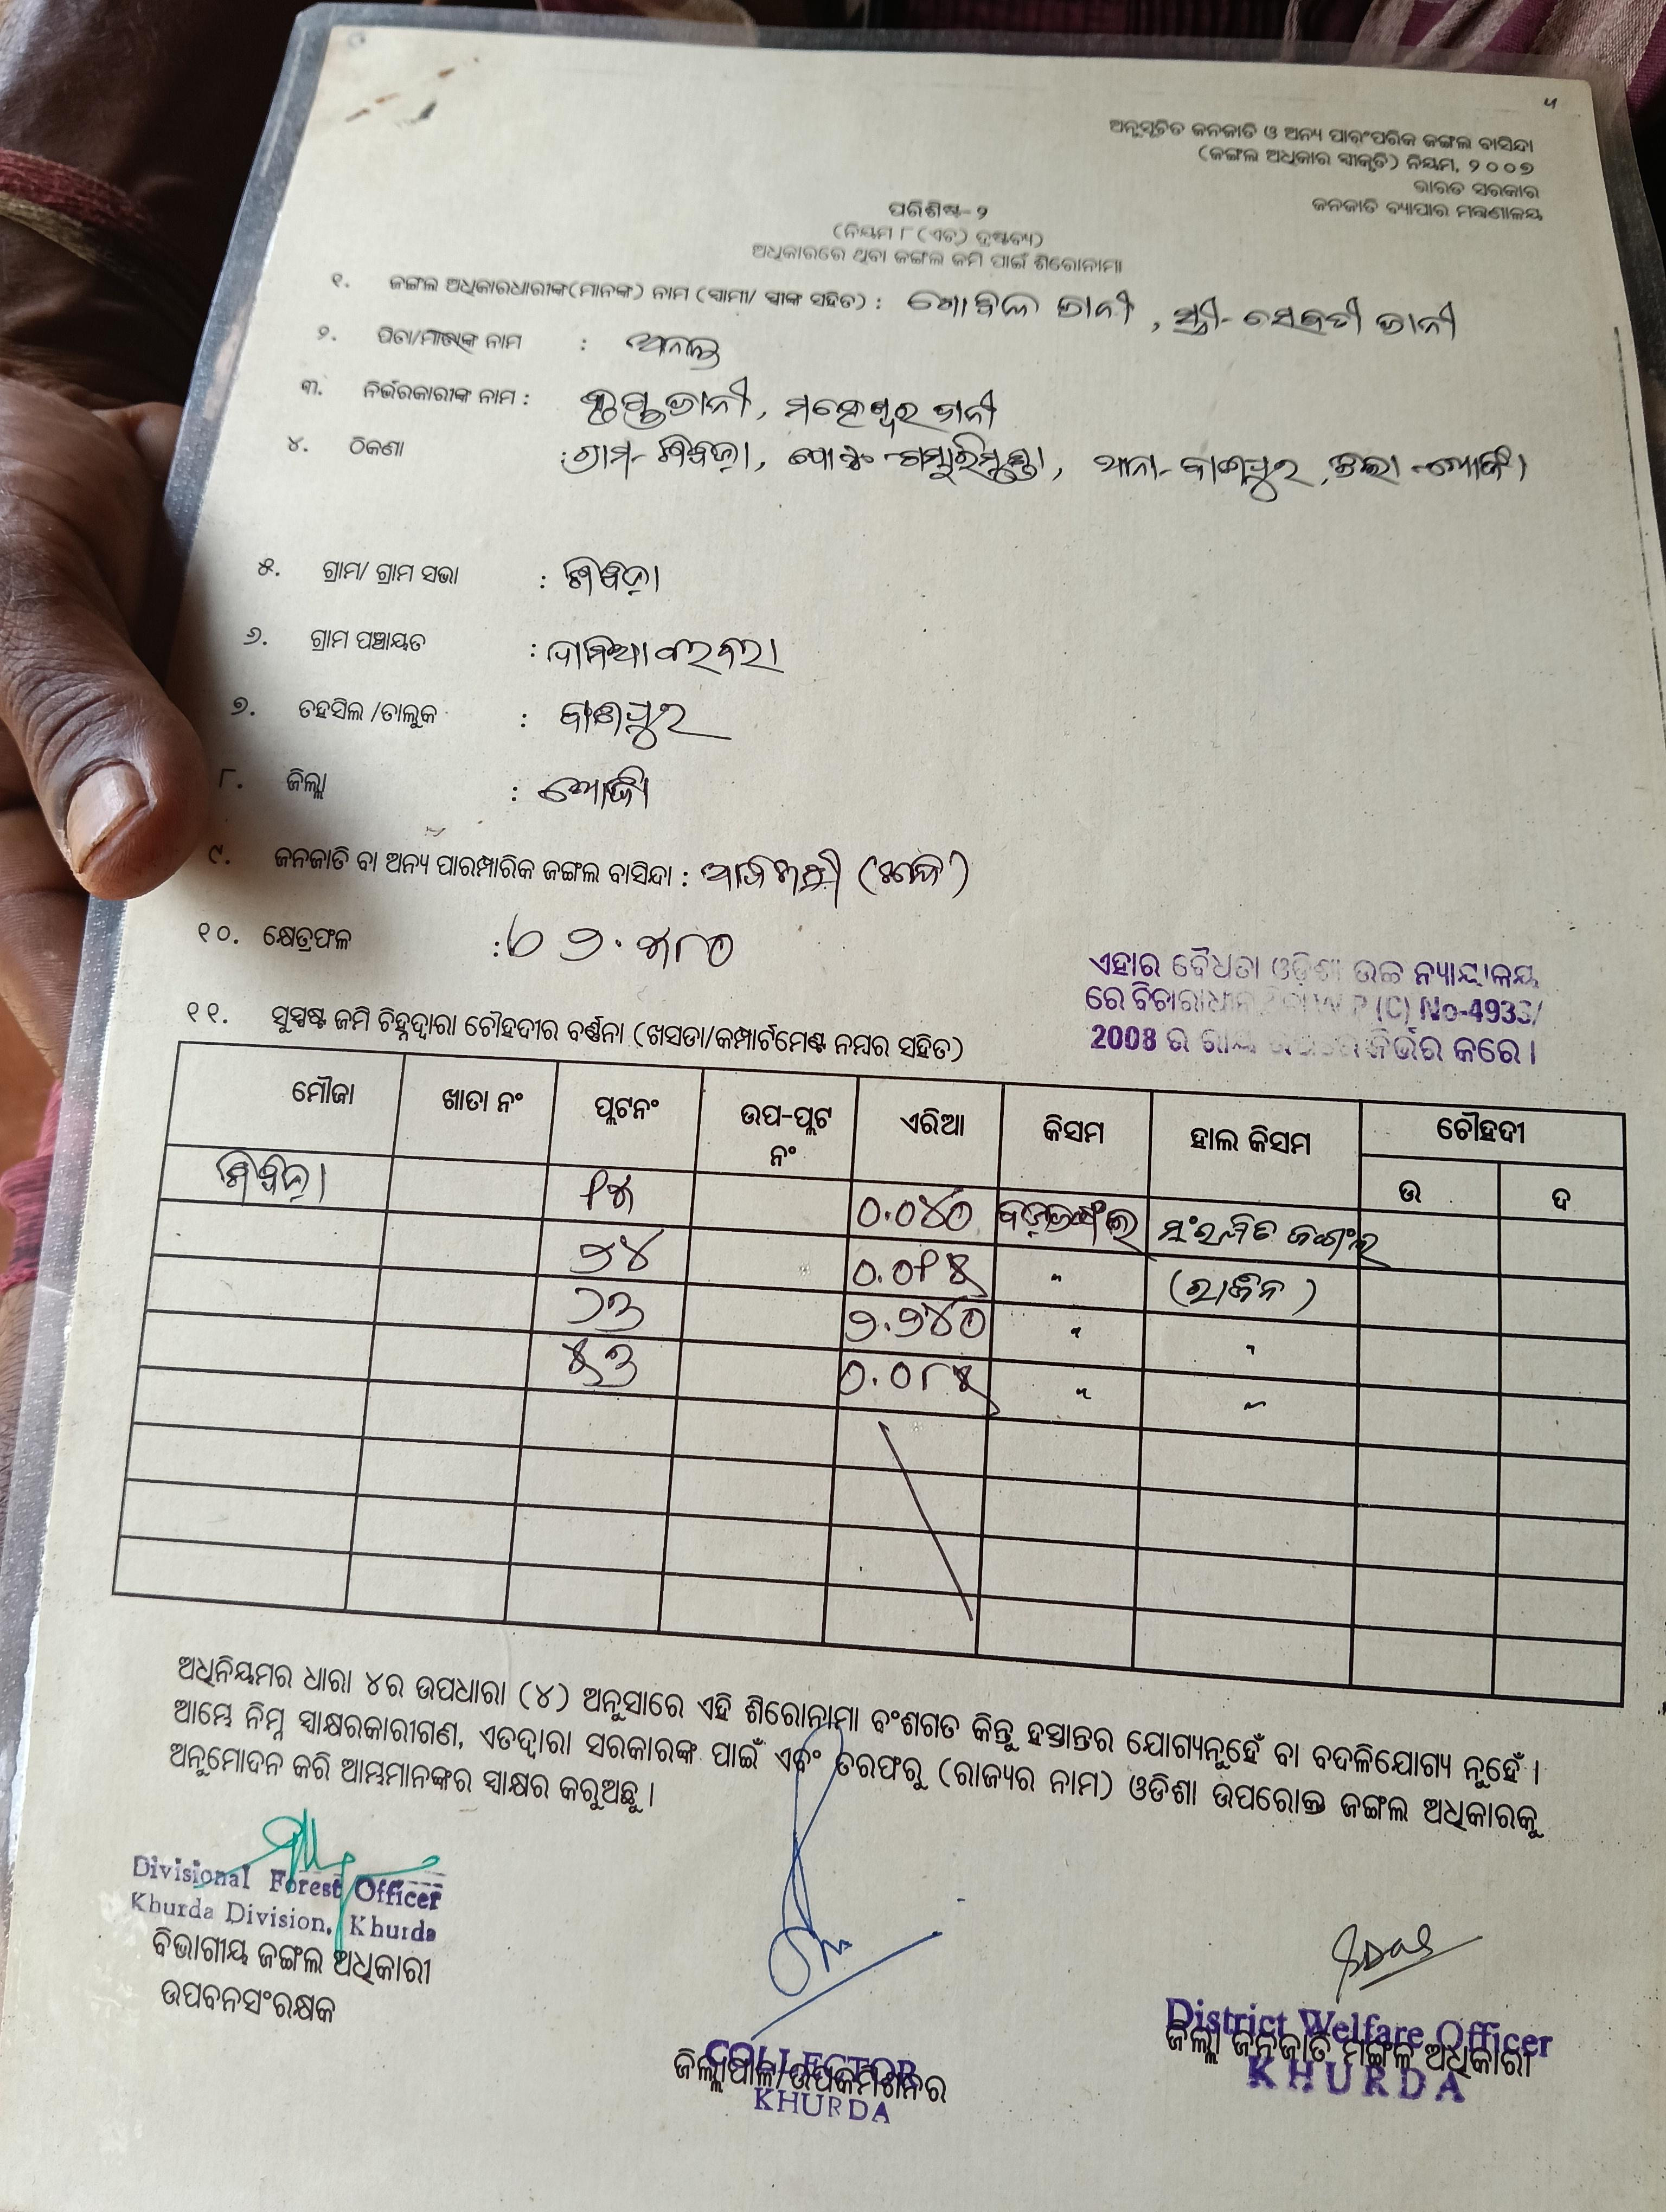 ଅନୁସୂଚିତ ଜନଜାତି ଓ ଅନ୍ୟ ପାରଂପରିକ ଜଙ୍ଗଲ ବାସିନ୍ଦା
(ଜଙ୍ଗଲ ଅଧିକାର ସ୍ୱୀକୃତି) ନିୟମ, ୨୦୦୭
ଭାରତ ସରକାର
ଜନଜାତି ବ୍ୟାପାର ମନ୍ତ୍ରଣାଳୟ
ପରିଶିଷ୍ଟ-୨
(ନିୟମ ୮ (ଏଚ) ଦ୍ରଷ୍ଟବ୍ୟ)
ଅଧିକାରରେ ଥିବା ଜଙ୍ଗଲ ଜମି ପାଇଁ ଶିରୋନାମା
୧. ଜଙ୍ଗଲ ଅଧିକାରଧାରୀଙ୍କ(ମାନଙ୍କ) ନାମ (ସ୍ୱାମୀ/ ସ୍ତ୍ରୀଙ୍କ ସହିତ) : ଗୋବିନ୍ଦ ଭାନୀ, ସ୍ତ୍ରୀ- ସେବତୀ ଭାନୀ
୨. ପିତା/ମାତାଙ୍କ ନାମ : ଅନନ୍ତ
୩. ନିର୍ଭରକାରୀଙ୍କ ନାମ : ଭାନୀ, ମହେଶ୍ୱର ଭାନୀ
୪. ଠିକଣା : ଗ୍ରାମ- ପୋଷ୍ଟ- ଥାନା- ବାଣପୁର, ଜିଲା- ଖୋର୍ଦ୍ଧା
୫. ଗ୍ରାମ/ ଗ୍ରାମ ସଭା :
୬. ଗ୍ରାମ ପଞ୍ଚାୟତ :
୭. ତହସିଲ /ତାଲୁକ : ବାଣପୁର
୮. ଜିଲ୍ଲା : ଖୋର୍ଦ୍ଧା
୯. ଜନଜାତି ବା ଅନ୍ୟ ପାରମ୍ପାରିକ ଜଙ୍ଗଲ ବାସିନ୍ଦା : ଆଦିବାସୀ
୧୦. କ୍ଷେତ୍ରଫଳ :
ଏହାର ବୈଧତା ଓଡ଼ିଶା ଉଚ୍ଚ ନ୍ୟାୟାଳୟ
ରେ ବିଚାରାଧୀନ (C) No-4933/
2008 ର ରାୟ ନିର୍ଭର କରେ ।
୧୧. ସୁସ୍ପଷ୍ଟ ଜମି ଚିହ୍ନଦ୍ୱାରା ଚୌହଦୀର ବର୍ଣ୍ଣନା (ଖସଡା/କମ୍ପାର୍ଟମେଣ୍ଟ ନମ୍ବର ସହିତ)
ମୌଜା ଖାତା ନଂ ପ୍ଲଟନଂ ଉପ-ପ୍ଲଟ ନଂ ଏରିଆ କିସମ ହାଲ କିସମ ଚୌହଦୀ
ଉ ଦ
୧୫ ୦.୦୪୦ ସଂରକ୍ଷିତ ଜଙ୍ଗଲ
୨୪ ୦.୦୧୫ "
୭୩ ୨.୨୪୦ " "
୫୩ ୦.୦୮୫ " "
ଅଧିନିୟମର ଧାରା ୪ର ଉପଧାରା (୪) ଅନୁସାରେ ଏହି ଶିରୋନାମା ବଂଶଗତ କିନ୍ତୁ ହସ୍ତାନ୍ତର ଯୋଗ୍ୟନୁହେଁ ବା ବଦଳିଯୋଗ୍ୟ ନୁହେଁ ।
ଆମ୍ଭେ ନିମ୍ନ ସ୍ୱାକ୍ଷରକାରୀଗଣ, ଏତଦ୍ୱାରା ସରକାରଙ୍କ ପାଇଁ ଏବଂ ତରଫରୁ (ରାଜ୍ୟର ନାମ) ଓଡିଶା ଉପରୋକ୍ତ ଜଙ୍ଗଲ ଅଧିକାରକୁ
ଅନୁମୋଦନ କରି ଆମ୍ଭମାନଙ୍କର ସ୍ୱାକ୍ଷର କରୁଅଛୁ ।
Divisional Forest Officer
Khurda Division, Khurda
ବିଭାଗୀୟ ଜଙ୍ଗଲ ଅଧିକାରୀ
ଉପବନସଂରକ୍ଷକ
COLLECTOR
ଜିଲ୍ଲାପାଳ/ଉପକମିଶନର
KHURDA
District Welfare Officer
ଜିଲ୍ଲା ଜନଜାତି ମଙ୍ଗଳ ଅଧିକାରୀ
KHURDA